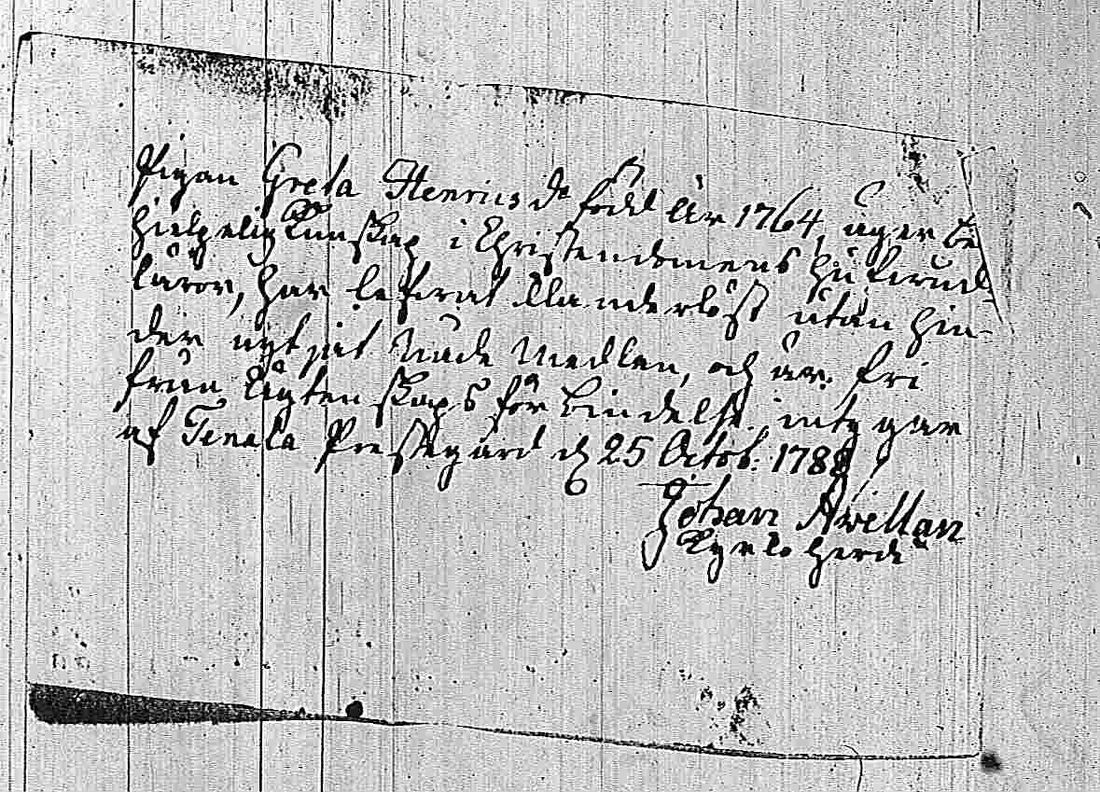 Pigan Greta Henrics dr född År 1764, äger be
hielpelig Kunskap i Christendomens hufwud-
läror, har lefwat Klanderlöst utan hin-
der nyttjat Nåde Medlen, och är fri
från Ägtenskaps förbindelse, intygar
af Tenala Prestegård d 25 Octob: 1788
Johan Awellan
Kyrko Herde